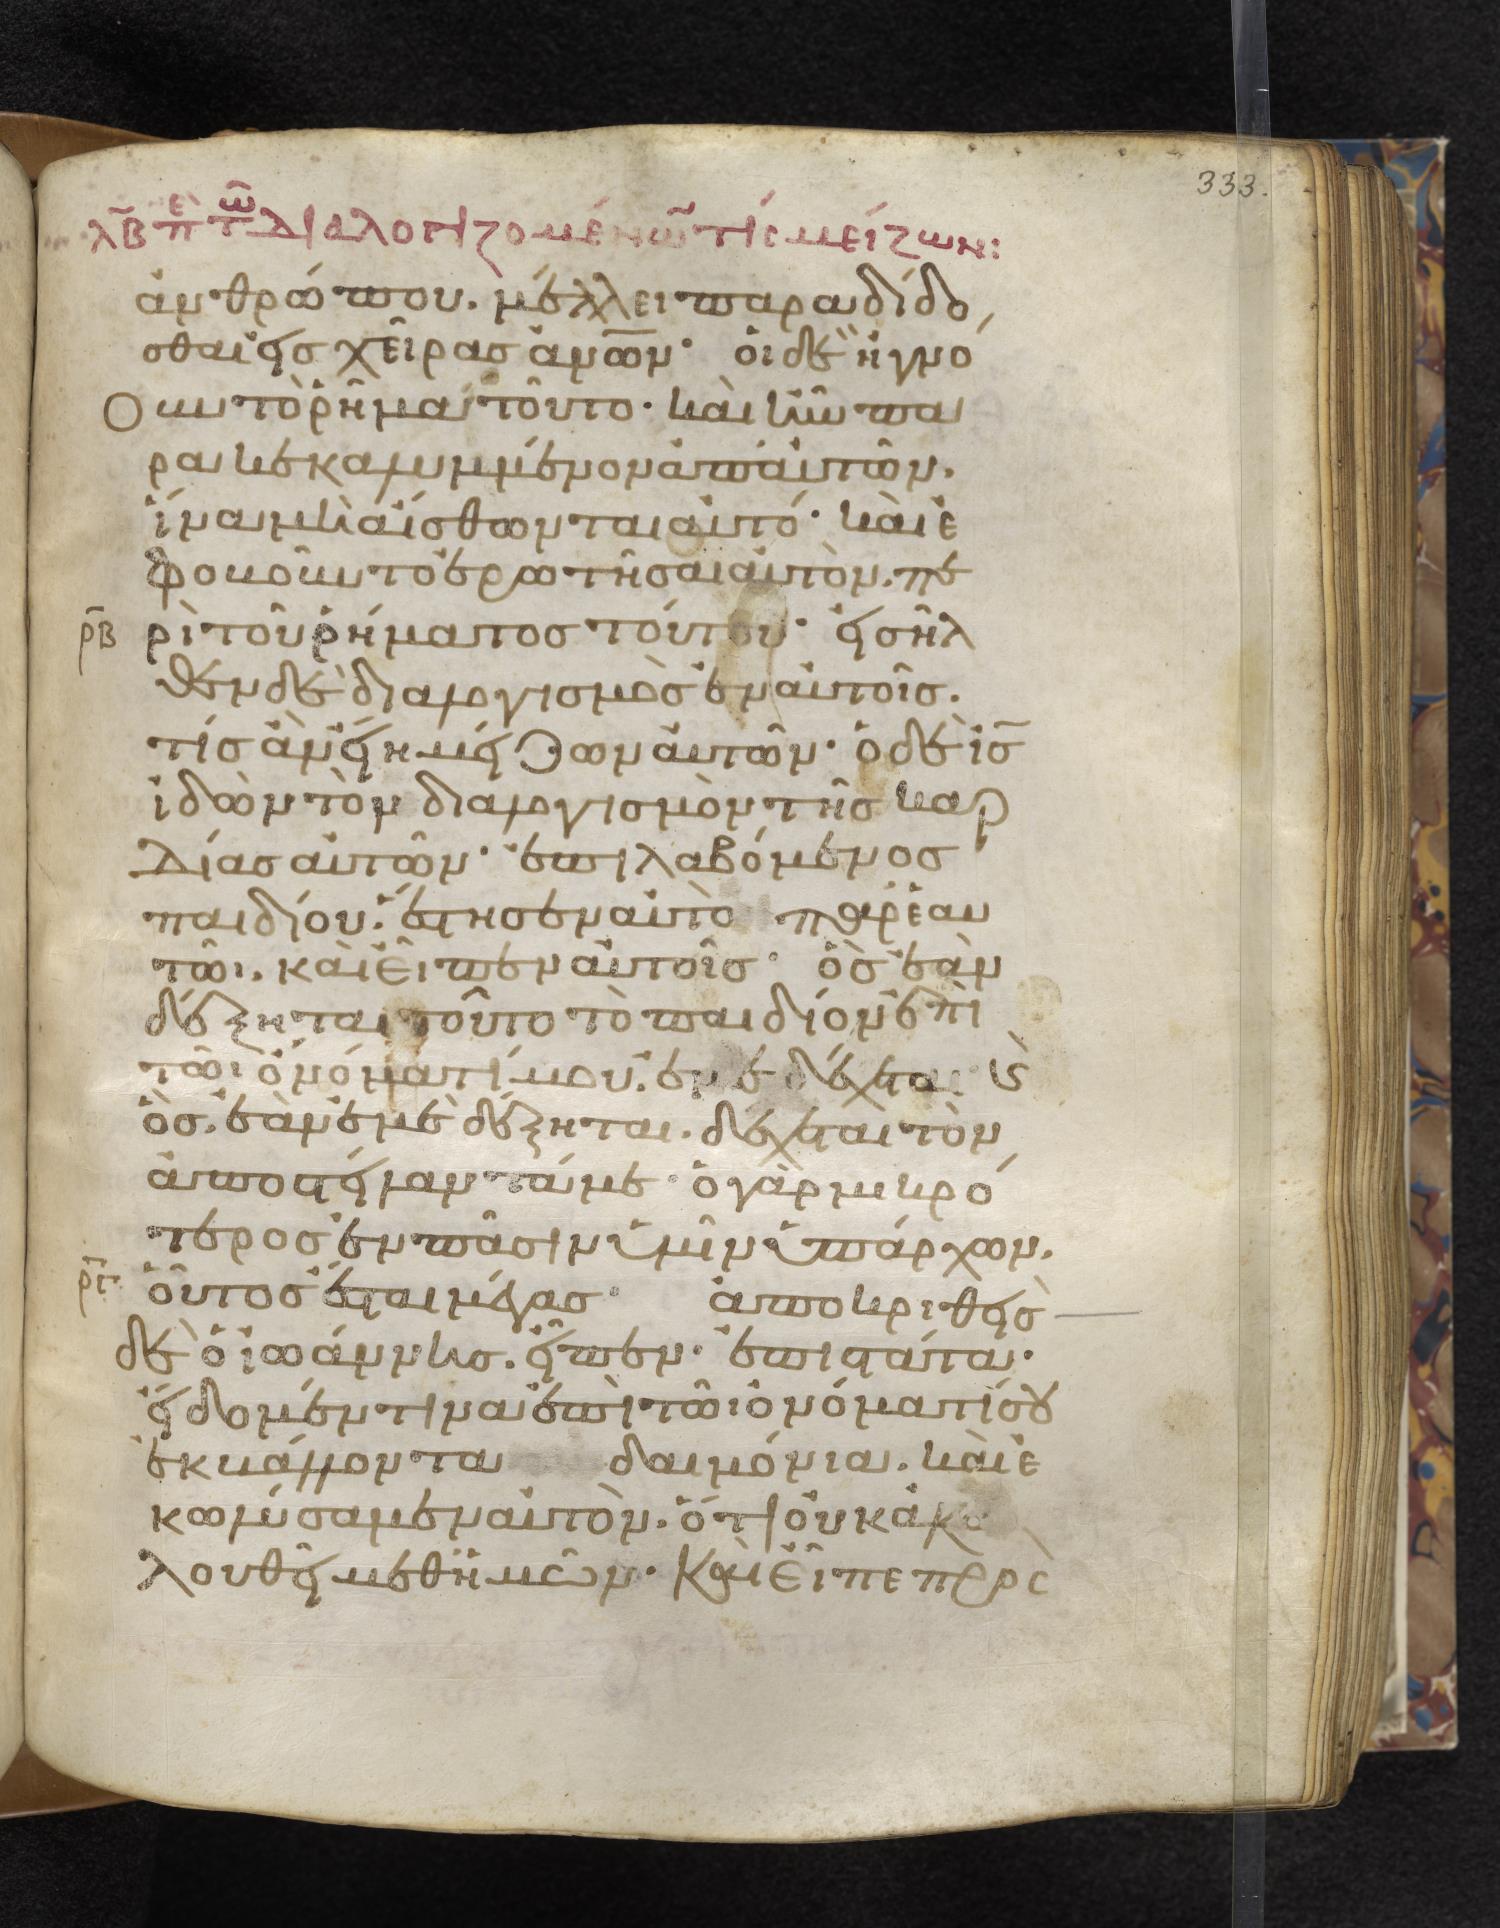 333.
λβ πε τω διαλογιζομένω τίς μείζων:
ἀνθρώπου. μέλλει παραδίδο
σθαι εἰς χεῖρας ἀνων· οἱ δὲ ἠγνό
ουν τὸ ῥῆμα τοῦτο· καὶ ἦν πα
ρακεκαλυμμένον ἀπ' αὐτῶν.
ἵνα μὴ αἴσθωνται αὐτό· καὶ ἐ
φοβοῦντο ἐρωτῆσαι αὐτὸν. πε
ρβ ρὶ τοῦ ῥήματος τούτου· εἰσῆλ
θεν δὲ διαλογισμὸς ἐν αὐτοῖς.
τίς ἂν εἴη μείζων αὐτῶν· ὁ δὲ ἰς
ἰδὼν τὸν διαλογισμὸν τῆς καρ
δίας αὐτῶν· ἐπιλαβόμενος
παιδίου. ἔστησεν αὐτὸ παρ' ἑαυ
τῶι. καὶ εἶπεν αὐτοῖς· ὃς ἐὰν
δέξηται τοῦτο τὸ παιδίον ἐπὶ
τῶι ὀνόματί μου. ἐμὲ δέχεται ϗ
ὃς ἐὰν ἐμὲ δέξηται. δέχεται τὸν
ἀποστείλαντά με· ὁ γὰρ μικρό
τερος ἐν πᾶσιν ὑμῖν ὑπάρχων.
ργ οὗτος ἔσται μέγας· ἀποκριθεὶς
δὲ ὁ ἰωάννης. εἶπεν· ἐπιστάτα·
εἴδομέν τινα ἐπὶ τῶι ὀνόματί σου
ἐκβάλλοντα δαιμόνια. καὶ ἐ
κωλύσαμεν αὐτὸν. ὅτι οὐκ ἀκο
λουθεῖ μεθ' ἡμῶν· Καὶ εἶπε πρὸς